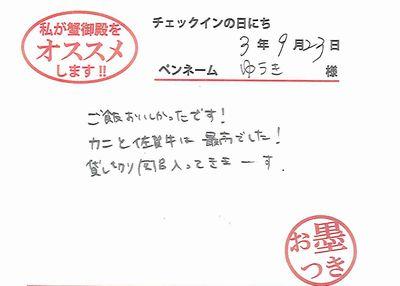 私が蟹御殿を
オススメ
します!!
チェックインの日にち
3年9月23日
ペンネーム ゆうき 様
ご飯おいしかったです!
カニと佐賀牛は最高でした!
貸し切り風呂入ってきまーす.
お墨
つき